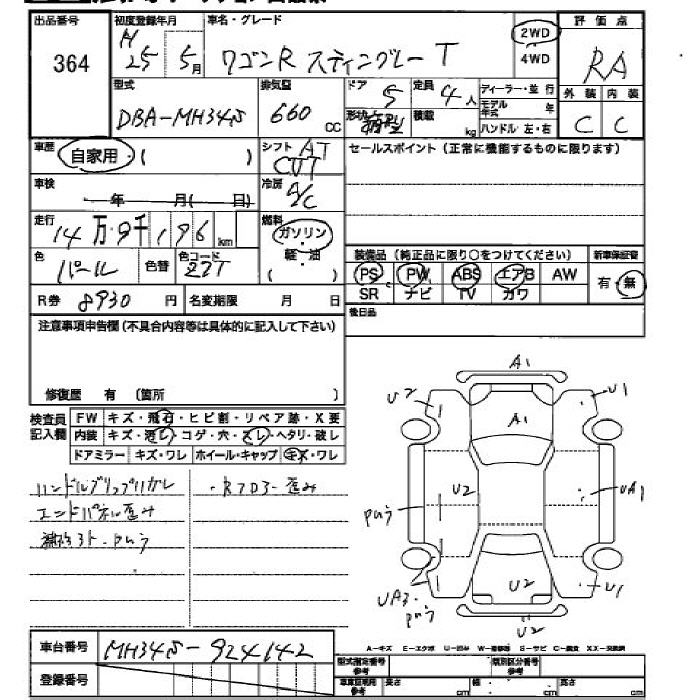 出品番号
364
初度登録年月
H 25 5月
車名・グレード
ワゴンR スティングレー T
2WD
4WD
評価点
RA
外装 内装
C C
型式
DBA-MH34S
排気量
660 cc
ドア 5
定員 4人
形状
積載 kg
ディーラー・並行
モデル年式 年
ハンドル 左・右
車歴 自家用・( )
シフト AT
CVT
セールスポイント(正常に機能するものに限ります)
車検 年 月( 日)
冷房 A/C
走行 14万9千196km
燃料 ガソリン・軽・油
( )
色 パール 色替 色コード Z7T
装備品(純正品に限り○をつけてください)
新車保証書
PS PW ABS エアB AW
SR ナビ TV カワ
有・無
R券 8930円 名変期限 月 日
後日品
注意事項申告欄(不具合内容等は具体的に記入して下さい)
修復歴 有 (箇所 )
検査員記入欄
FW キズ・飛石・ヒビ割・リペア跡・X要
内装 キズ・汚レ・コゲ・穴・スレ・ヘタリ・破レ
ドアミラー キズ・ワレ ホイール・キャップ キズ・ワレ
ハンドルグリップハガレ
エンドパネル歪み
・R7D3-歪み
A1
U2
U1
A1
U2
UA1
UA3・
U2
U1
U2
車台番号 MH34S-924142
登録番号
A-キズ E-エクボ U-凹み W-補修跡 S-サビ C-腐食 XX-交換済
型式指定番号 参考
類別区分番号 参考
車庫証明用 参考
長さ cm
幅 cm
高さ cm